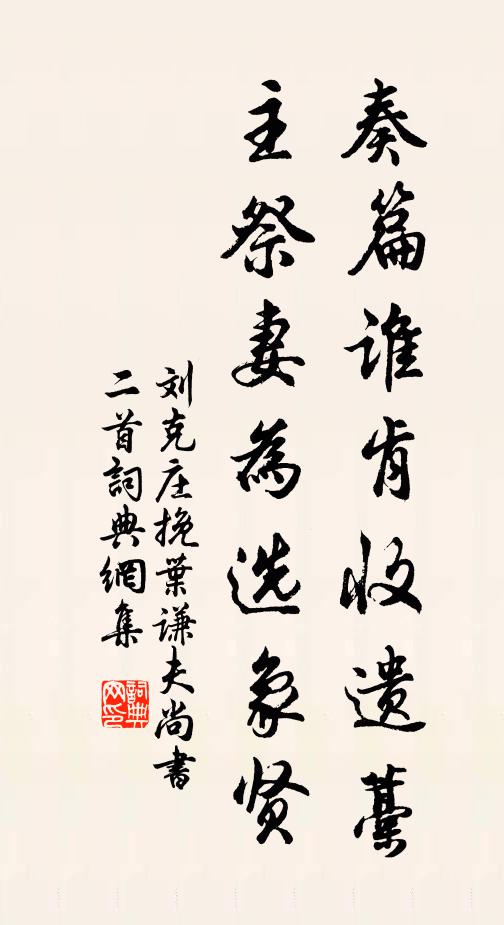 奏篇谁肯收遗藁
主祭妻為选象贤
刘克庄挽葉谦夫尚書
二首詞典網集
詞典
网印